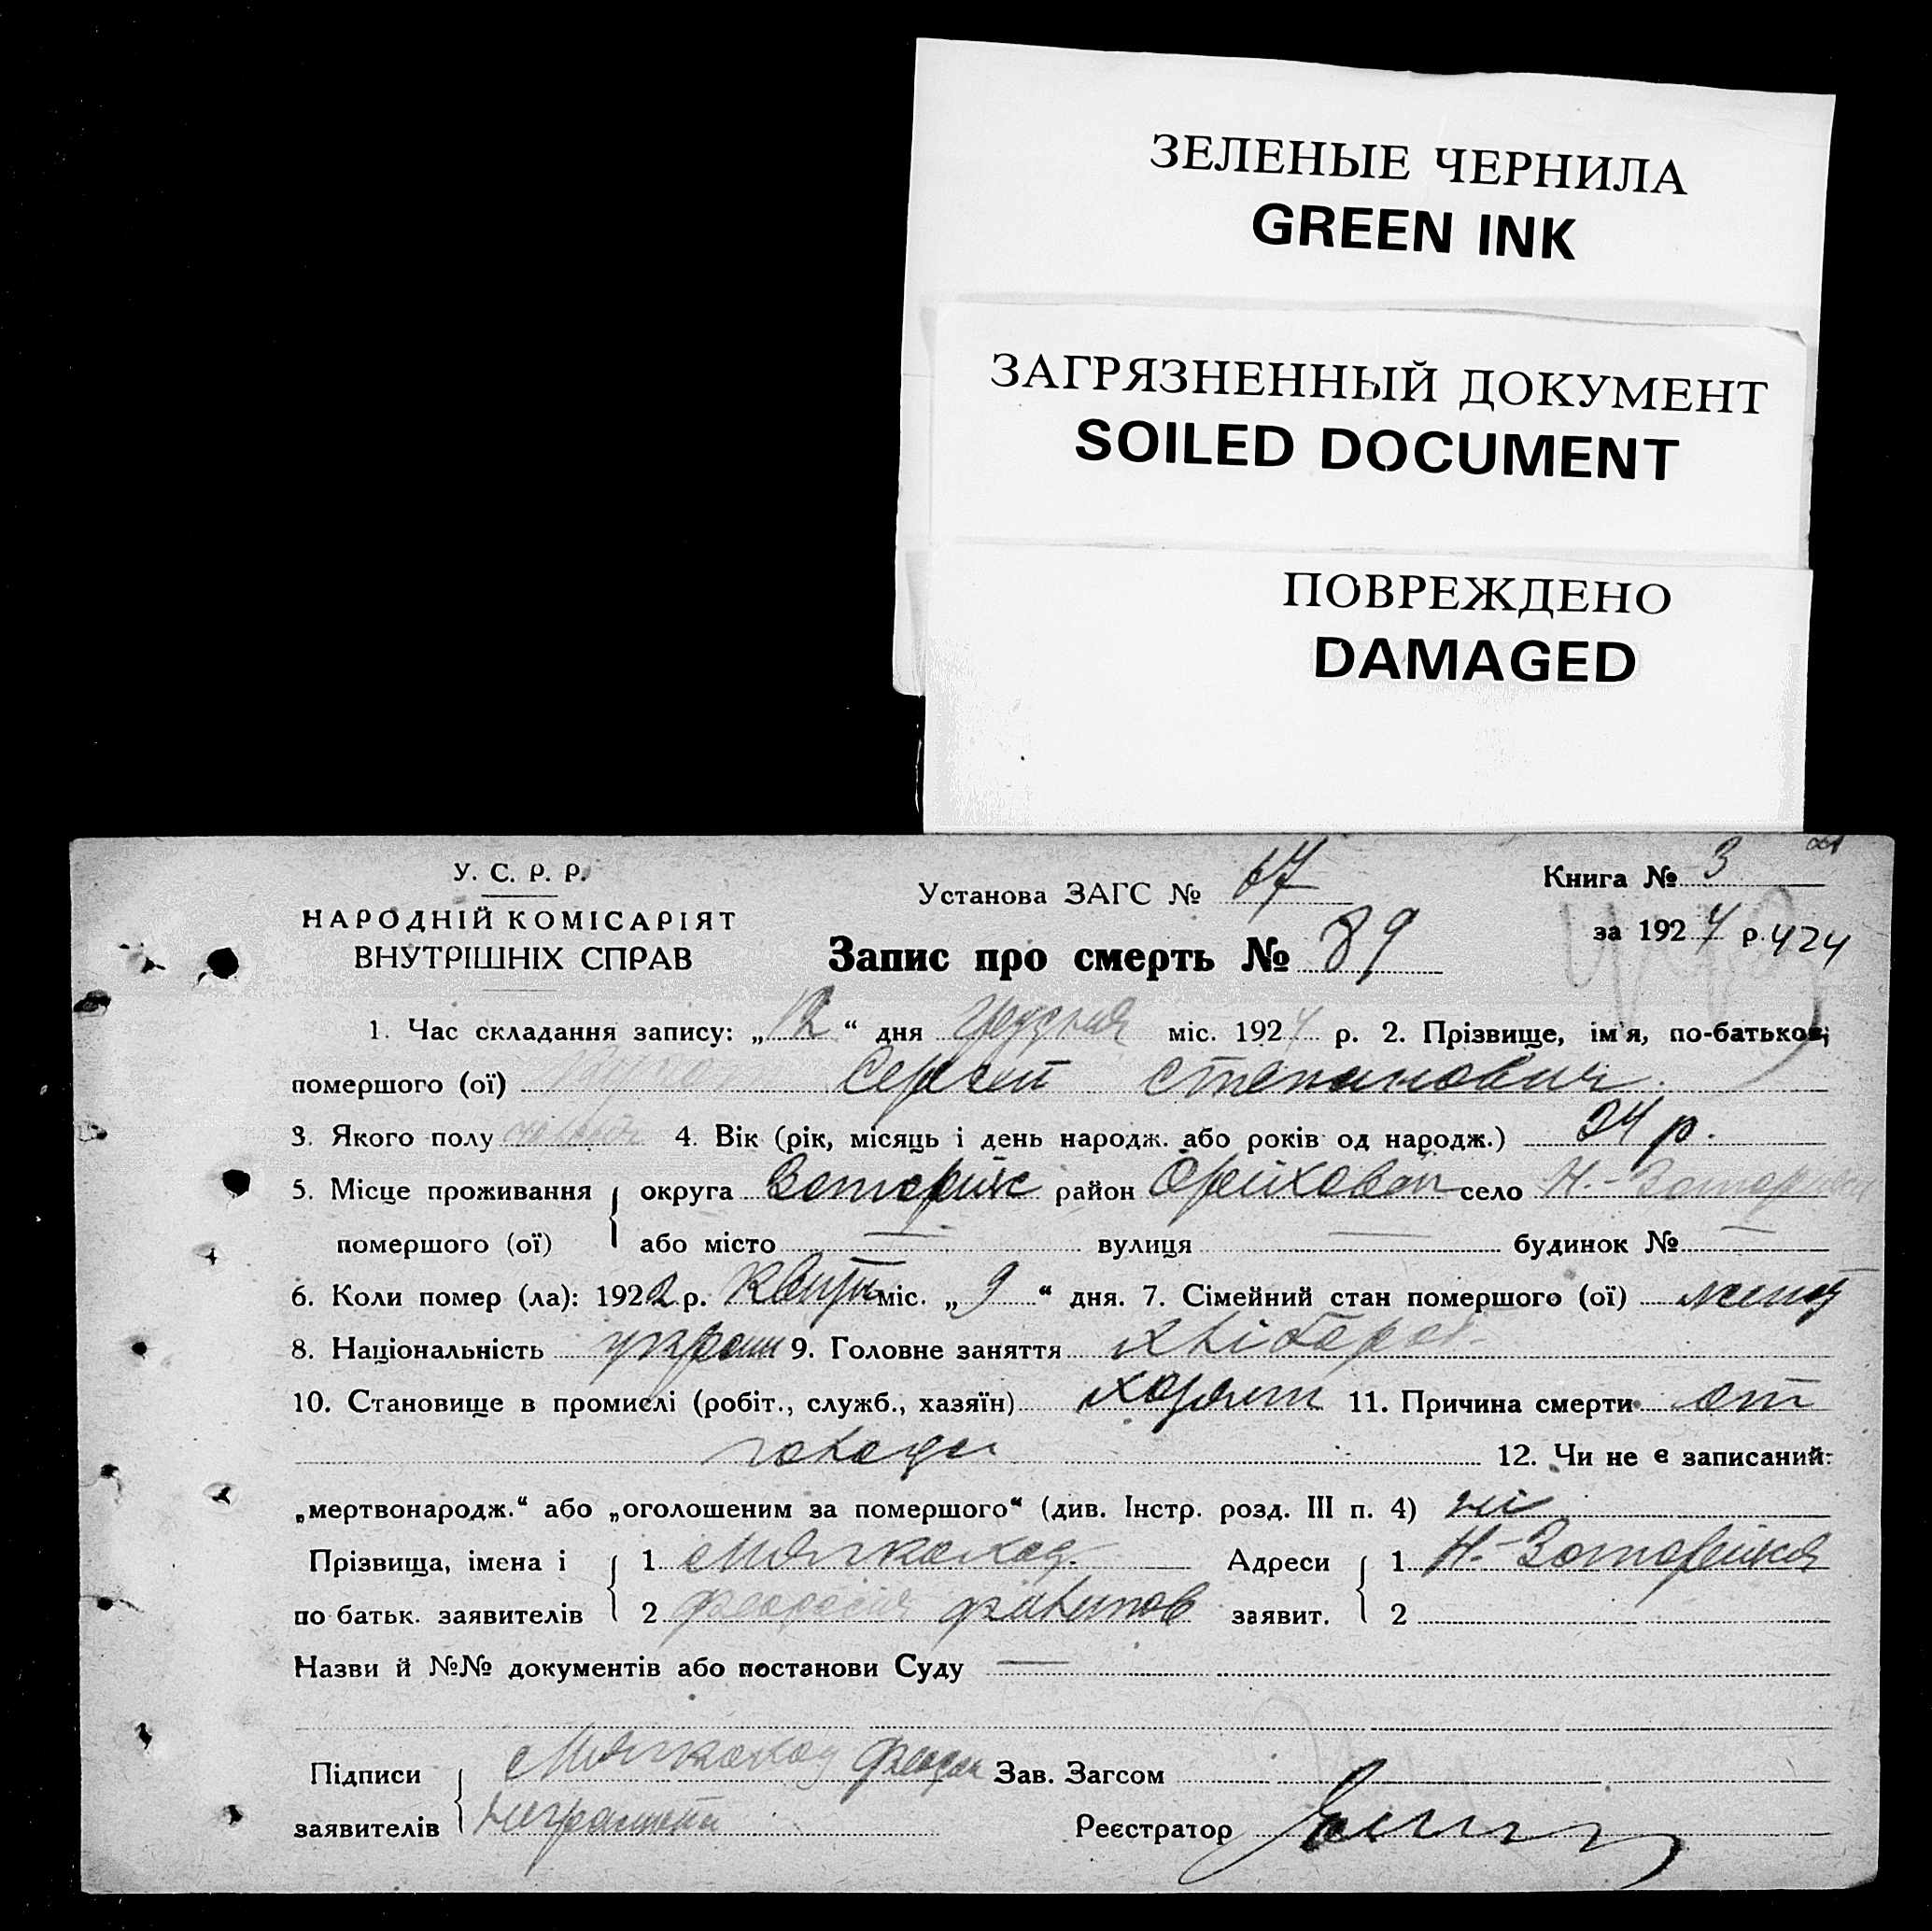 ЗЕЛЕНЫЕ ЧЕРНИЛА
GREEN INK
ЗАГРЯЗНЕННЫЙ ДОКУМЕНТ
SOILED DOCUMENT
ПОВРЕЖДЕНО
DAMAGED
У. С. Р. Р.
НАРОДНІЙ КОМІСАРІЯТ
ВНУТРІШНІХ СПРАВ
Установа ЗАГС № 67
Книга № 3
за 1924 р. 424
Запис про смерть № 89
1. Час складання запису: „12“ дня Грудня міс. 1924 р. 2. Прізвище, ім'я, по-батькові
помершого (ої) Сергей Степанович
3. Якого полу 4. Вік (рік, місяць і день народж. або років од народж.) 24 р.
5. Місце проживання округа район село Н.-
помершого (ої) або місто — вулиця — будинок № —
6. Коли помер (ла): 1922 р. міс. „9“ дня. 7. Сімейний стан помершого (ої)
8. Національність 9. Головне заняття хлібороб
10. Становище в промислі (робіт., служб., хазяїн) 11. Причина смерти от
голода 12. Чи не є записаний:
„мертвонародж.“ або „оголошеним за помершого“ (див. Інстр. розд. III п. 4) ні
Прізвища, імена і 1 Мягкоход Адреси 1 Н.-
по батьк. заявителів 2 заявит. 2
Назви й №№ документів або постанови Суду —
Підписи Мягкоход Зав. Загсом
заявителів Реєстратор